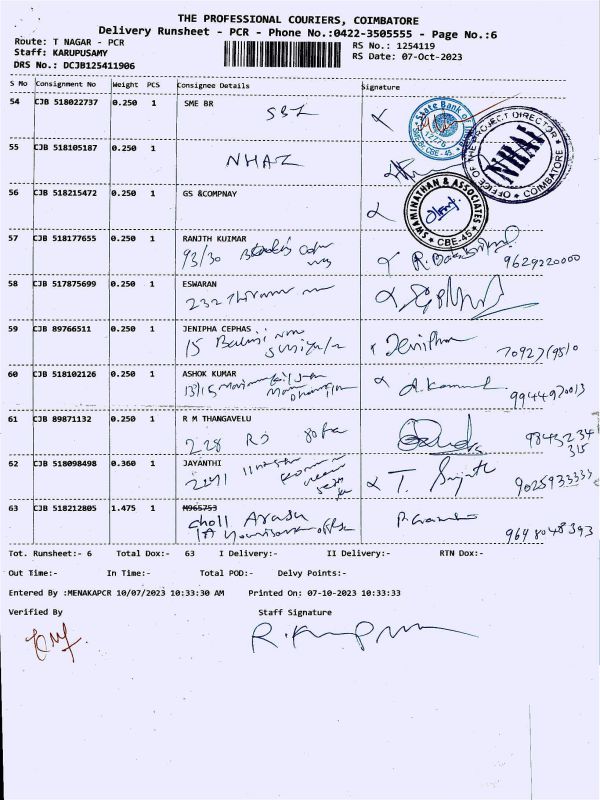 THE PROFESSIONAL COURIERS, COIMBATORE
Delivery Runsheet - PCR - Phone No.:0422-3505555 - Page No.:6
Route: T NAGAR - PCR
RS No.: 1254119
Staff: KARUPUSAMY
RS Date: 07-Oct-2023
DRS No.: DCJB125411906
S No Consignment No Weight PCS Consignee Details Signature
54 CJB 518022737 0.250 1 SME BR
SBI
State Bank of
CBE-45
55 CJB 518105187 0.250 1
NHAI
OFFICE OF THE PROJECT DIRECTOR
NHAI
COIMBATORE
56 CJB 518215472 0.250 1 GS &COMPNAY
SWAMINATHAN & ASSOCIATES
CBE-45
57 CJB 518177655 0.250 1 RANJTH KUIMAR
93/30
9629220000
58 CJB 517875699 0.250 1 ESWARAN
232
59 CJB 89766511 0.250 1 JENIPHA CEPHAS
15 Balaji
Jenipha
60 CJB 518102126 0.250 1 ASHOK KUMAR
61 CJB 89871132 0.250 1 R M THANGAVELU
228
9843234
315
62 CJB 518098498 0.360 1 JAYANTHI
T.
9025933333
63 CJB 518212805 1.475 1 M965753
9648048393
Tot. Runsheet:- 6 Total Dox:- 63 I Delivery:- II Delivery:- RTN Dox:-
Out Time:- In Time:- Total POD:- Delvy Points:-
Entered By :MENAKAPCR 10/07/2023 10:33:30 AM Printed On: 07-10-2023 10:33:33
Verified By Staff Signature